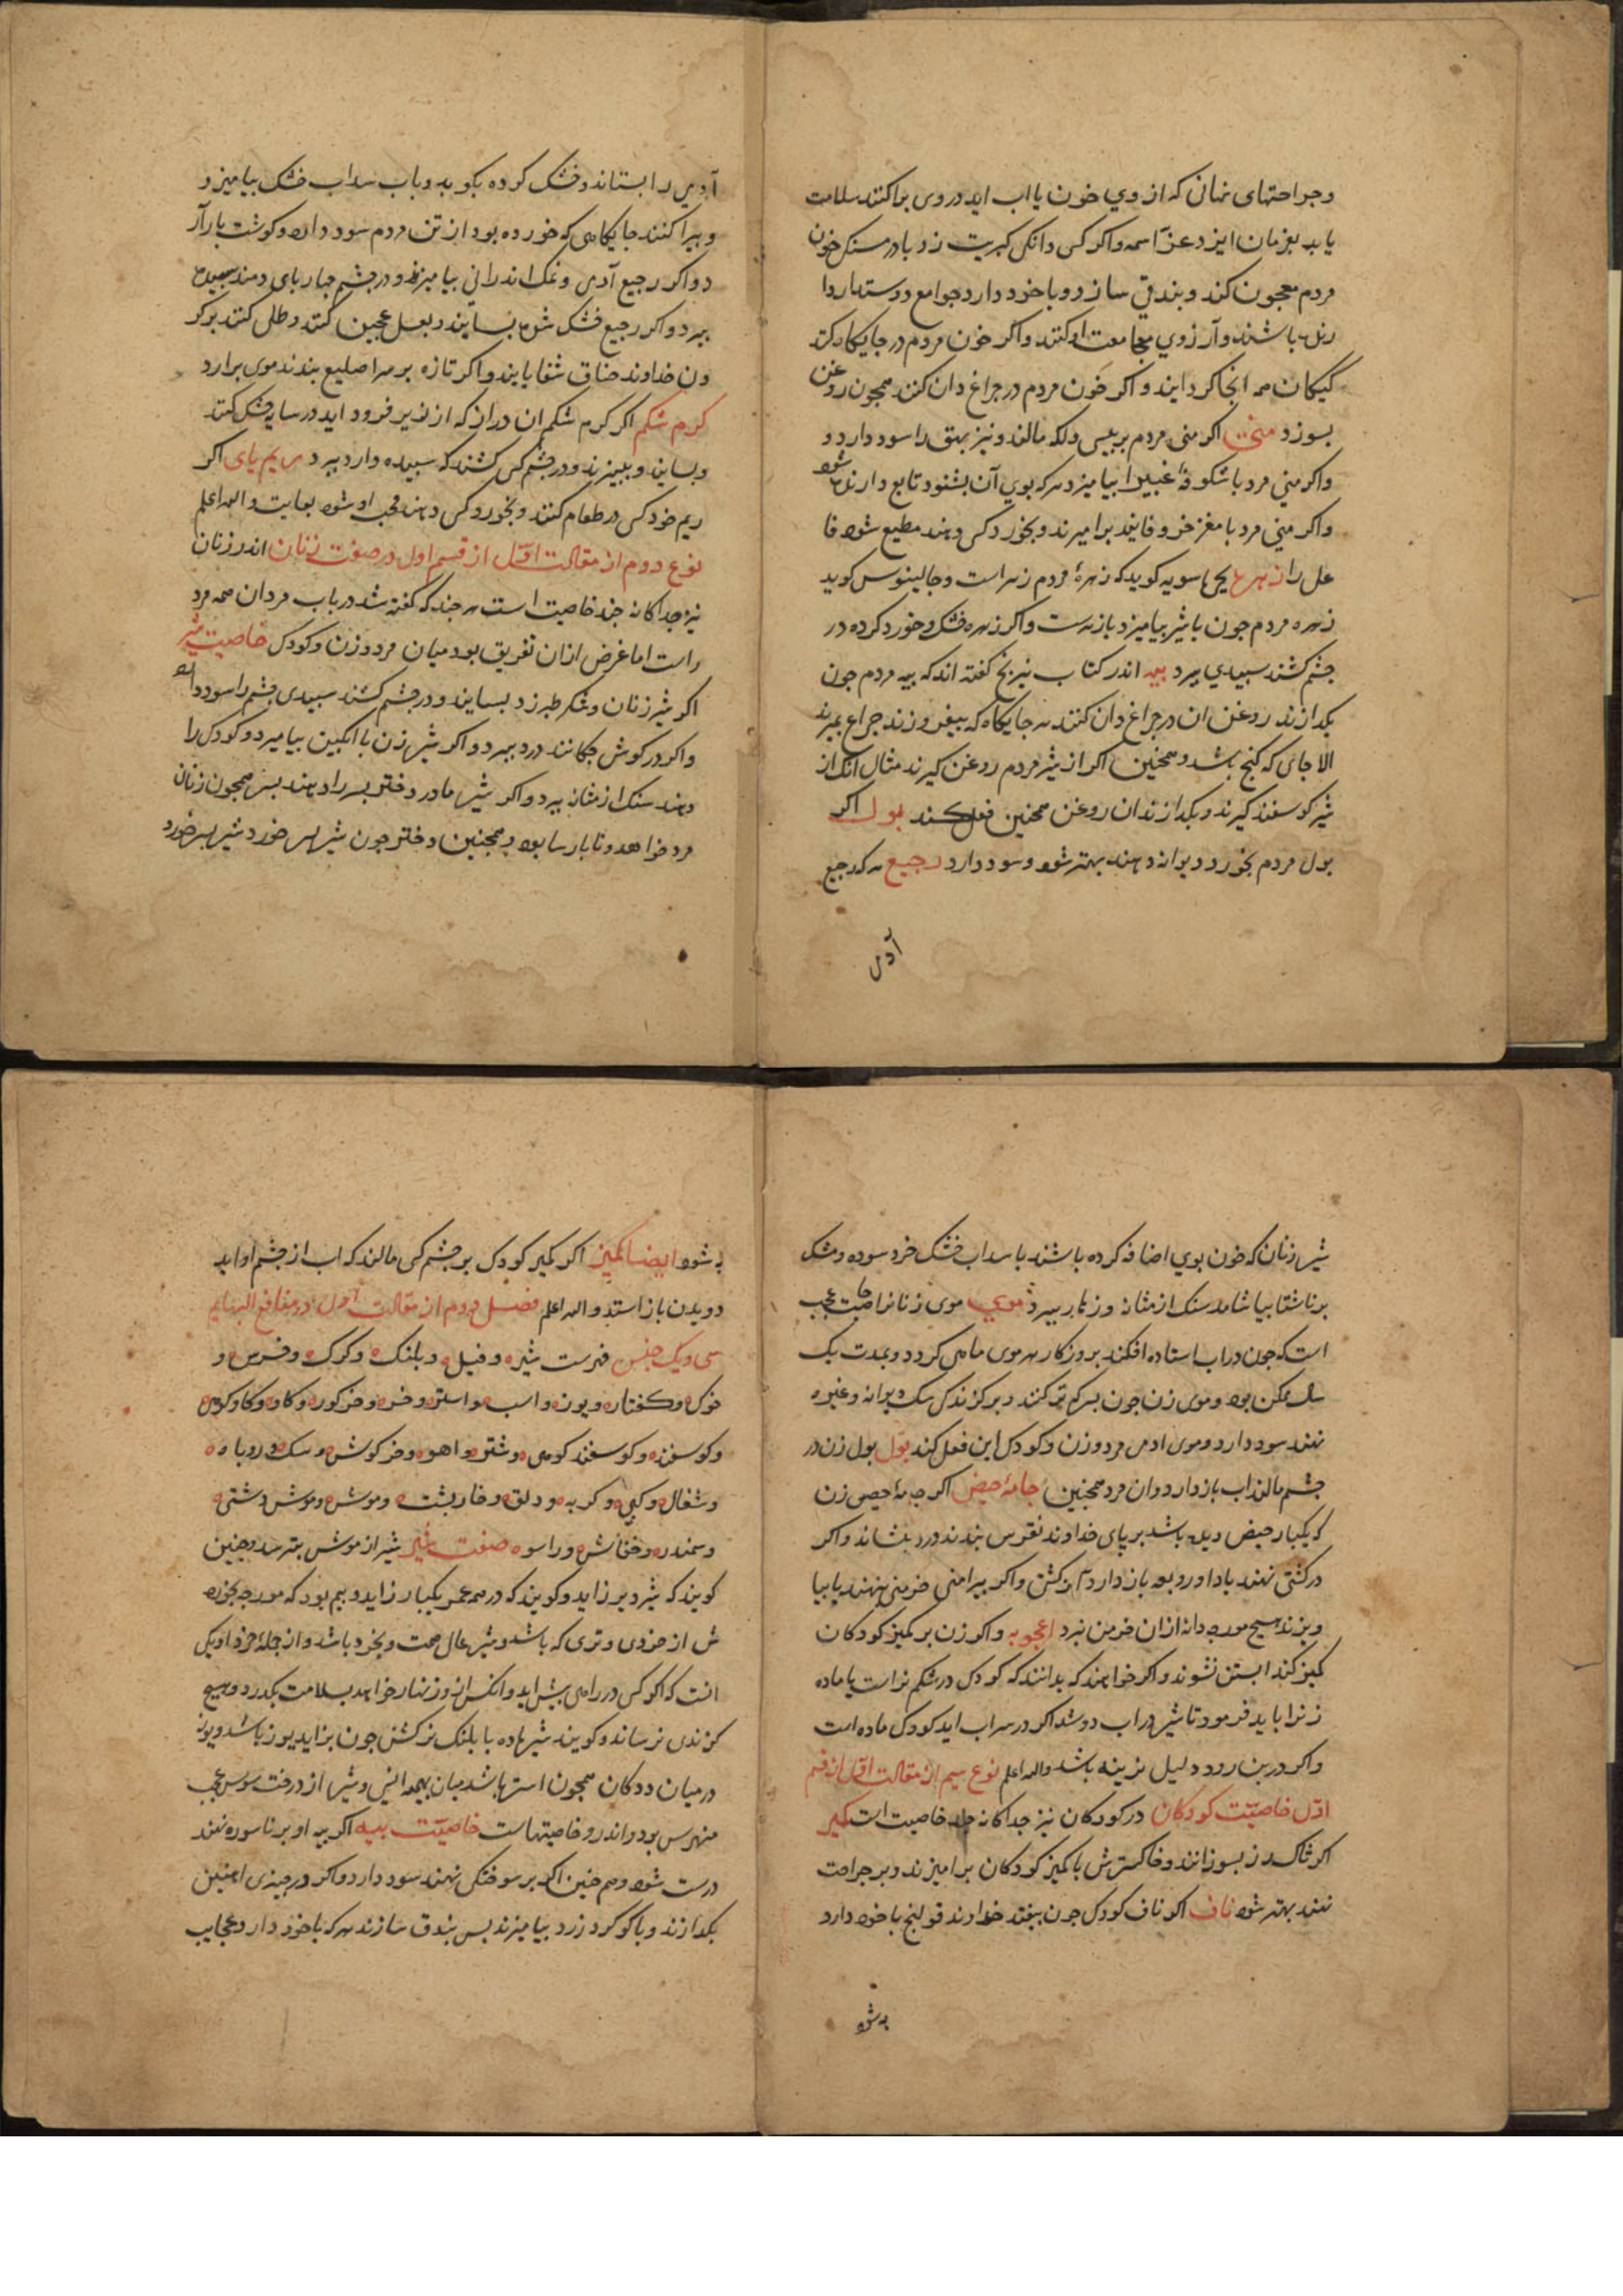 وجراحتهای نهان که از وی خون یا اب اید دروی پراکنند سلامت
یابد بفرمان ایزد عز اسمه واکر کسی دانکی کبریت زرد با درمسنک خون
مردم معجون کند وبندقی سازد وبا خود دارد جوامع
باشند وآرزوی مجامعت او کنند واکر خون مردم در جایکاه کند
کیکان همه انجا کرد ایند واکر خون مردم در چراغ دان کنند همچون روغن
بسوزد منی اکر منی مردم بر پیس ولکه مالند ونیز بهق را سود دارد و
واکر منی مرد با شکوفه غبیرا بیامیزد هرکه بوی آن بشنود تابع دارنده شود
واکر منی مرد با مغز خر وفانید برامیزند وبخورد کسی دهند مطیع شود فا
عل را زهره یحیی ماسویه کوید که زهرهٔ مردم زهر است وجالینوس کوید
زهره مردم جون باشیر بیامیزد باز هست واکر زهره خشک وخورد کرده در
جشم کشند سبیدی ببرد بیه اندر کتاب نیرنج کفته اند که بیه مردم جون
بکدازند روغن ان در چراغ دان کنند هر جایکاه که بیفروزند جراغ بمیرد
الا جای که کنج باشد وهمچنین اکر از شیر مردم روغن کیرند مثال انک از
شیر کوسفند کیرند وبکدازند ان روغن همچنین فعل کند بول اکر
بول مردم بخورد دیوانه دهند بهتر شود وسود دارد رجیع هرکه رجیع
آدمی
آدمی را بستاند وخشک کرده بکوبد وباب سداب خشک بیامیزد
وببراکنند جایکاهی که خورده بود از تن مردم سود دارد وکوشت بار آر
د واکر رجیع آدمی ونمک اندرانی بیامیزند ودر جشم جهاربای دمند سبیده
ببرد واکر رجیع خشک شده بسایند وبعسل عجین کنند وطلی کنند بر کر
دن خداوند خناق شفا یابند واکر تازه بر سر اصلیع بندند موی برارد
کرم شکم اکر کرم شکم ان دراز که از زیر فرود اید در سایه خشک کنند
وبساینده وببیزند ودر جشم کسی کشند که سبیده دارد ببرد ریم پای اکر
ریم خود کسی در طعام کنند وبخورد کسی دهند محب او شود بغایت والله اعلم
نوع دوم از مقالت اول از قسم اول در صفت زنان اندر زنان
نیز جداکانه جند خاصیت است هر جند که کفته شد در باب مردان همه مرد
راست اما غرض ازان تفریق بود میان مرد وزن وکودک خاصیت شیر
اکر شیر زنان وشکر طبرزد بسایند ودر جشم کشند سبیدی جشم را سود دارد
واکر در کوش جکانند درد ببرد واکر شیر زن با انکبین بیامیزد وکودک را
دهند سنک از مثانه ببرد واکر شیر مادر دختر بسر را دهند بسر همچون زنان
مرد خواهد وتا بارسا بود وهمچنین دختر جون شیر بسر خورد شیر بسر خورد
شیر زنان که خون بوی اضافه کرده باشند با سداب خشک خرد سوده ومشک
بر ناشتا بیاشامد سنک از مثانه وزهار ببرد موی موی زنانرا خاصیت عجب
است که جون در اب استاده افکند بروزکار هر موی ماهی کردد وبمدت یک
سال ممکن بود وموی زن جون بسرکه تر کنند وبر کزندکی سک دیوانه وغیره
نهند سود دارد وموی ادمی مرد وزن وکودک این فعل کند بول بول زن در
جشم مالند اب باز دارد وان مرد همچنین جامهٔ حیض اکر جامهٔ حیض زن
که یکبار حیض دیده باشد بر پای خداوند نقرس بندند درد بنشاند واکر
در کشتی نهند باد اورد بود باز دارد از کشتی واکر پیرامن خرمنی بنهند یا بیا
ویزند هیچ مورجه دانه از ان خرمن نبرد اعجوبه واکر زن بر کمیز کودکان
کمیز کند ابستن نشوند واکر خواهند که بدانند که کودک در شکم نر است یا ماده
زنرا باید فرمود تا شیر در اب دوشد اکر در سر اب اید کودک ماده است
واکر در بن رود دلیل نرینه باشد والله اعلم نوع سیم از مقالت اول از قسم
اول خاصیت کودکان در کودکان نیز جداکانه جند خاصیت است کمیز
اکر تاک رز بسوزانند وخاکسترش با کمیز کودکان برامیزند وبر جراحت
نهند بهتر شود ناف اکر ناف کودک جون بیفتد خداوند قولنج باخود دارد
به شود
به شود ایضا کمیز اکر کمیز کودک بر جشم کسی مالند که اب از جشم او اید
دویدن باز استد والله اعلم فصل دوم از مقالت اول در منافع البهایم
سی ویک جنس فهرست شیر وفیل وبلنک وکرک وخرس و
خوک وکفتار ویوز واسب واستر وخر وخرکور وکاو وکاو کوهی
وکوسفند وکوسفند کوهی وشتر واهو وخرکوش وسک وروباه
وشغال وکپی وکربه ودلق وخاربشت وموش وموش دشتی
وسمندر وخفاش وراسو صفت شیر شیر از موش بترسد وجنین
کویند که شیر دیر زاید وکویند که در همه عمر یکبار زاید وبیم بود که مورجه بخورد
ش از خردی وتری که باشد وشیر عالی همت وبخرد باشد واز جملهٔ خرد او یکی
انست که اکر کسی در راهی بیش اید وانکس ازو زنهار خواهد بسلامت بکذرد وهیچ
کزندی نرساند وکویند شیر ماده با بلنک نر کشن جون بزاید یوز باشد ویوز
در میان ددکان همچون استر باشد میان بهمه انسی وشیر از درخت سوس عجب
منهرس بود واندرو خاصیتهاست خاصیت بیه اکر بیه او بر ناسوره نهند
درست شود وهم جنین اکر بر سوختکی نهند سود دارد واکر در جیزی اهنین
بکدازند وبا کوکرد زرد بیامیزند بس بندق سازند هرکه باخود دارد عجایب